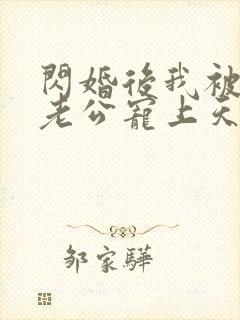 閃婚後我被
老公寵上天
鄒家驊